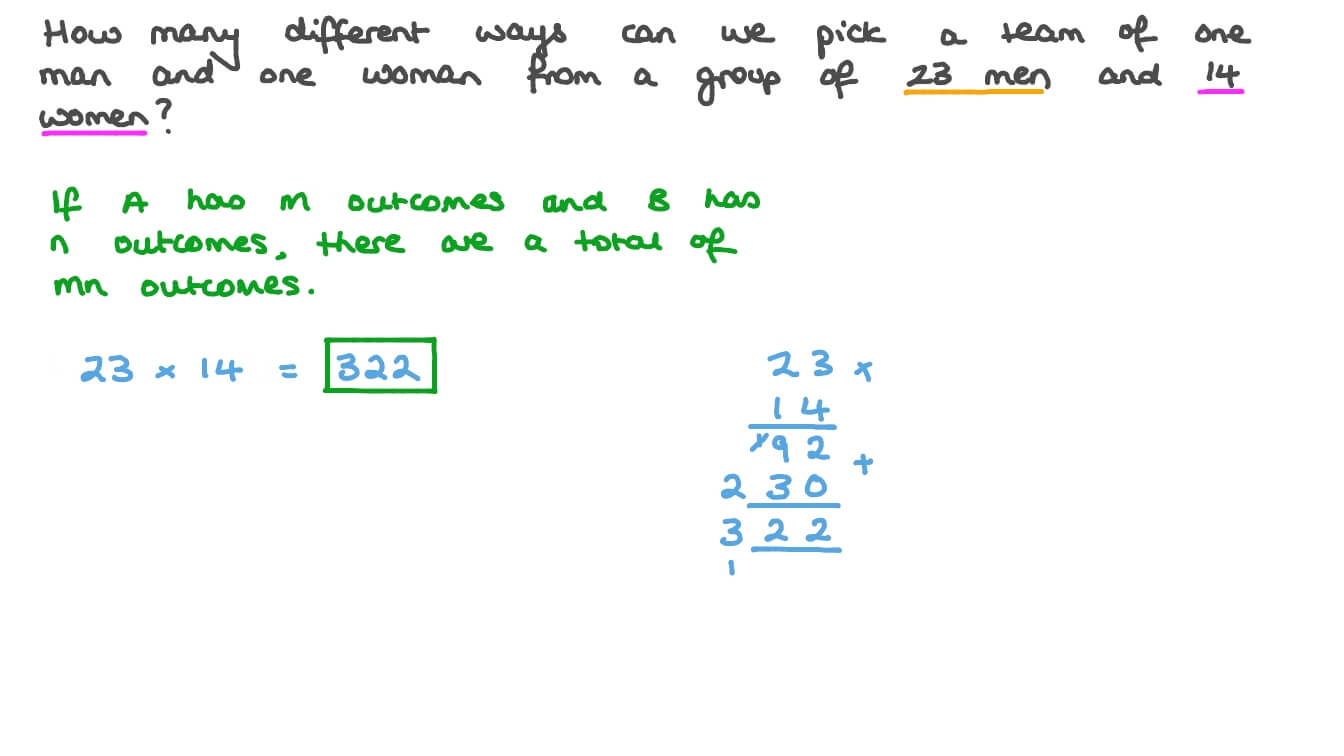 How many different ways can we pick a team of one
man and one woman from a group of 23 men and 14
women?
If A has m outcomes and B has
n outcomes, there are a total of
mn outcomes.
23 × 14 = 322
23 ×
14
192 +
230
322
1